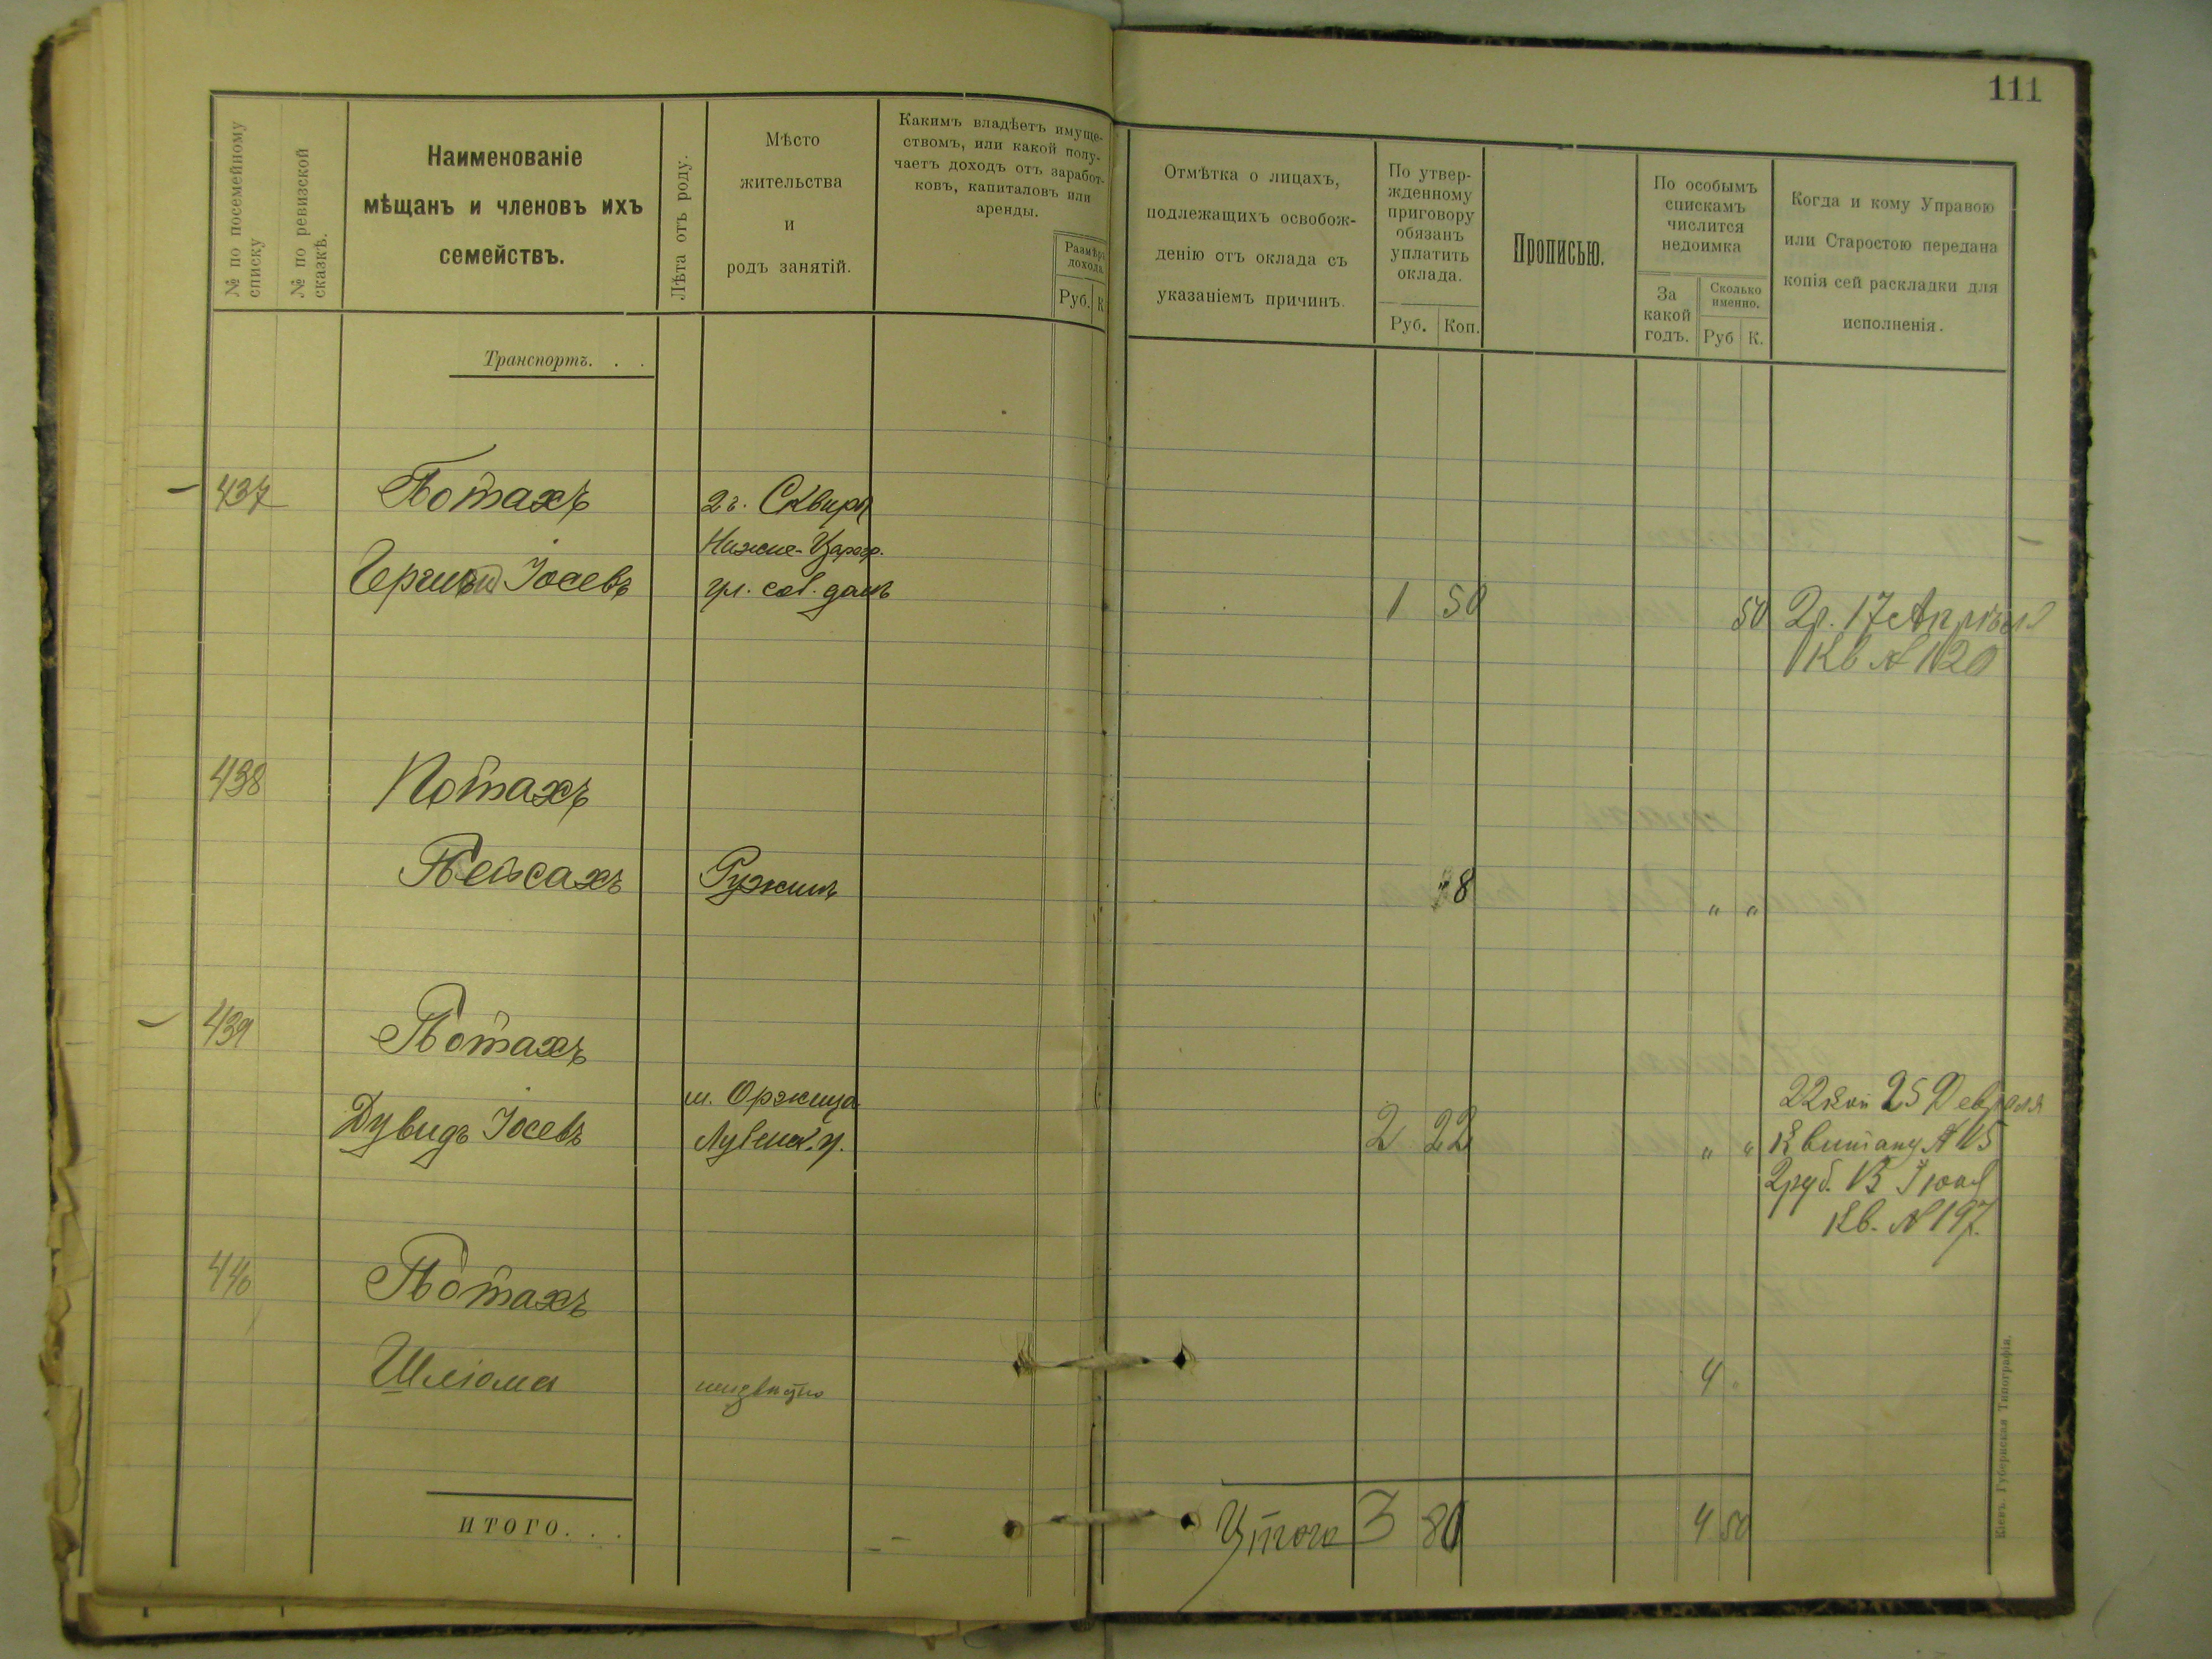 111
№ по посемейному списку
№ по ревизской сказкѣ.
Наименованіе
мѣщанъ и членовъ ихъ
семействъ.
Лѣта отъ роду.
Мѣсто
жительства
и
родъ занятій.
Какимъ владѣетъ имуще-
ствомъ, или какой полу-
чаетъ доходъ отъ заработ-
ковъ, капиталовъ или
аренды.
Размѣръ
дохода.
Руб. К.
Отмѣтка о лицахъ,
подлежащихъ освобож-
денію отъ оклада съ
указаніемъ причинъ.
По утвер-
жденному
приговору
обязанъ
уплатить
оклада.
Руб. Коп.
Прописью.
По особымъ
спискамъ
числится
недоимка
За
какой
годъ.
Сколько
именно.
Руб К.
Когда и кому Управою
или Старостою передана
копія сей раскладки для
исполненія.
Транспортъ. . .
437 Потахъ г. Сквира
Нижне-
Іосевъ ул. соб. домъ 1 50 50 2р. 17 Апрѣля
Кв № 120
438 Потахъ
Пейсахъ Ружинъ 8 " "
439 Потахъ
м. Оржица 22 коп 25 Февраля
Дувидъ Іосевъ Лубенск. у. 2 22 " " Квитанц №
2руб. Іюня
Кв. № 197.
440 Потахъ
Шліома неизвѣстно 4
ИТОГО. . . Итого 3 80 4 50
Кіевъ. Губернская Типографія.